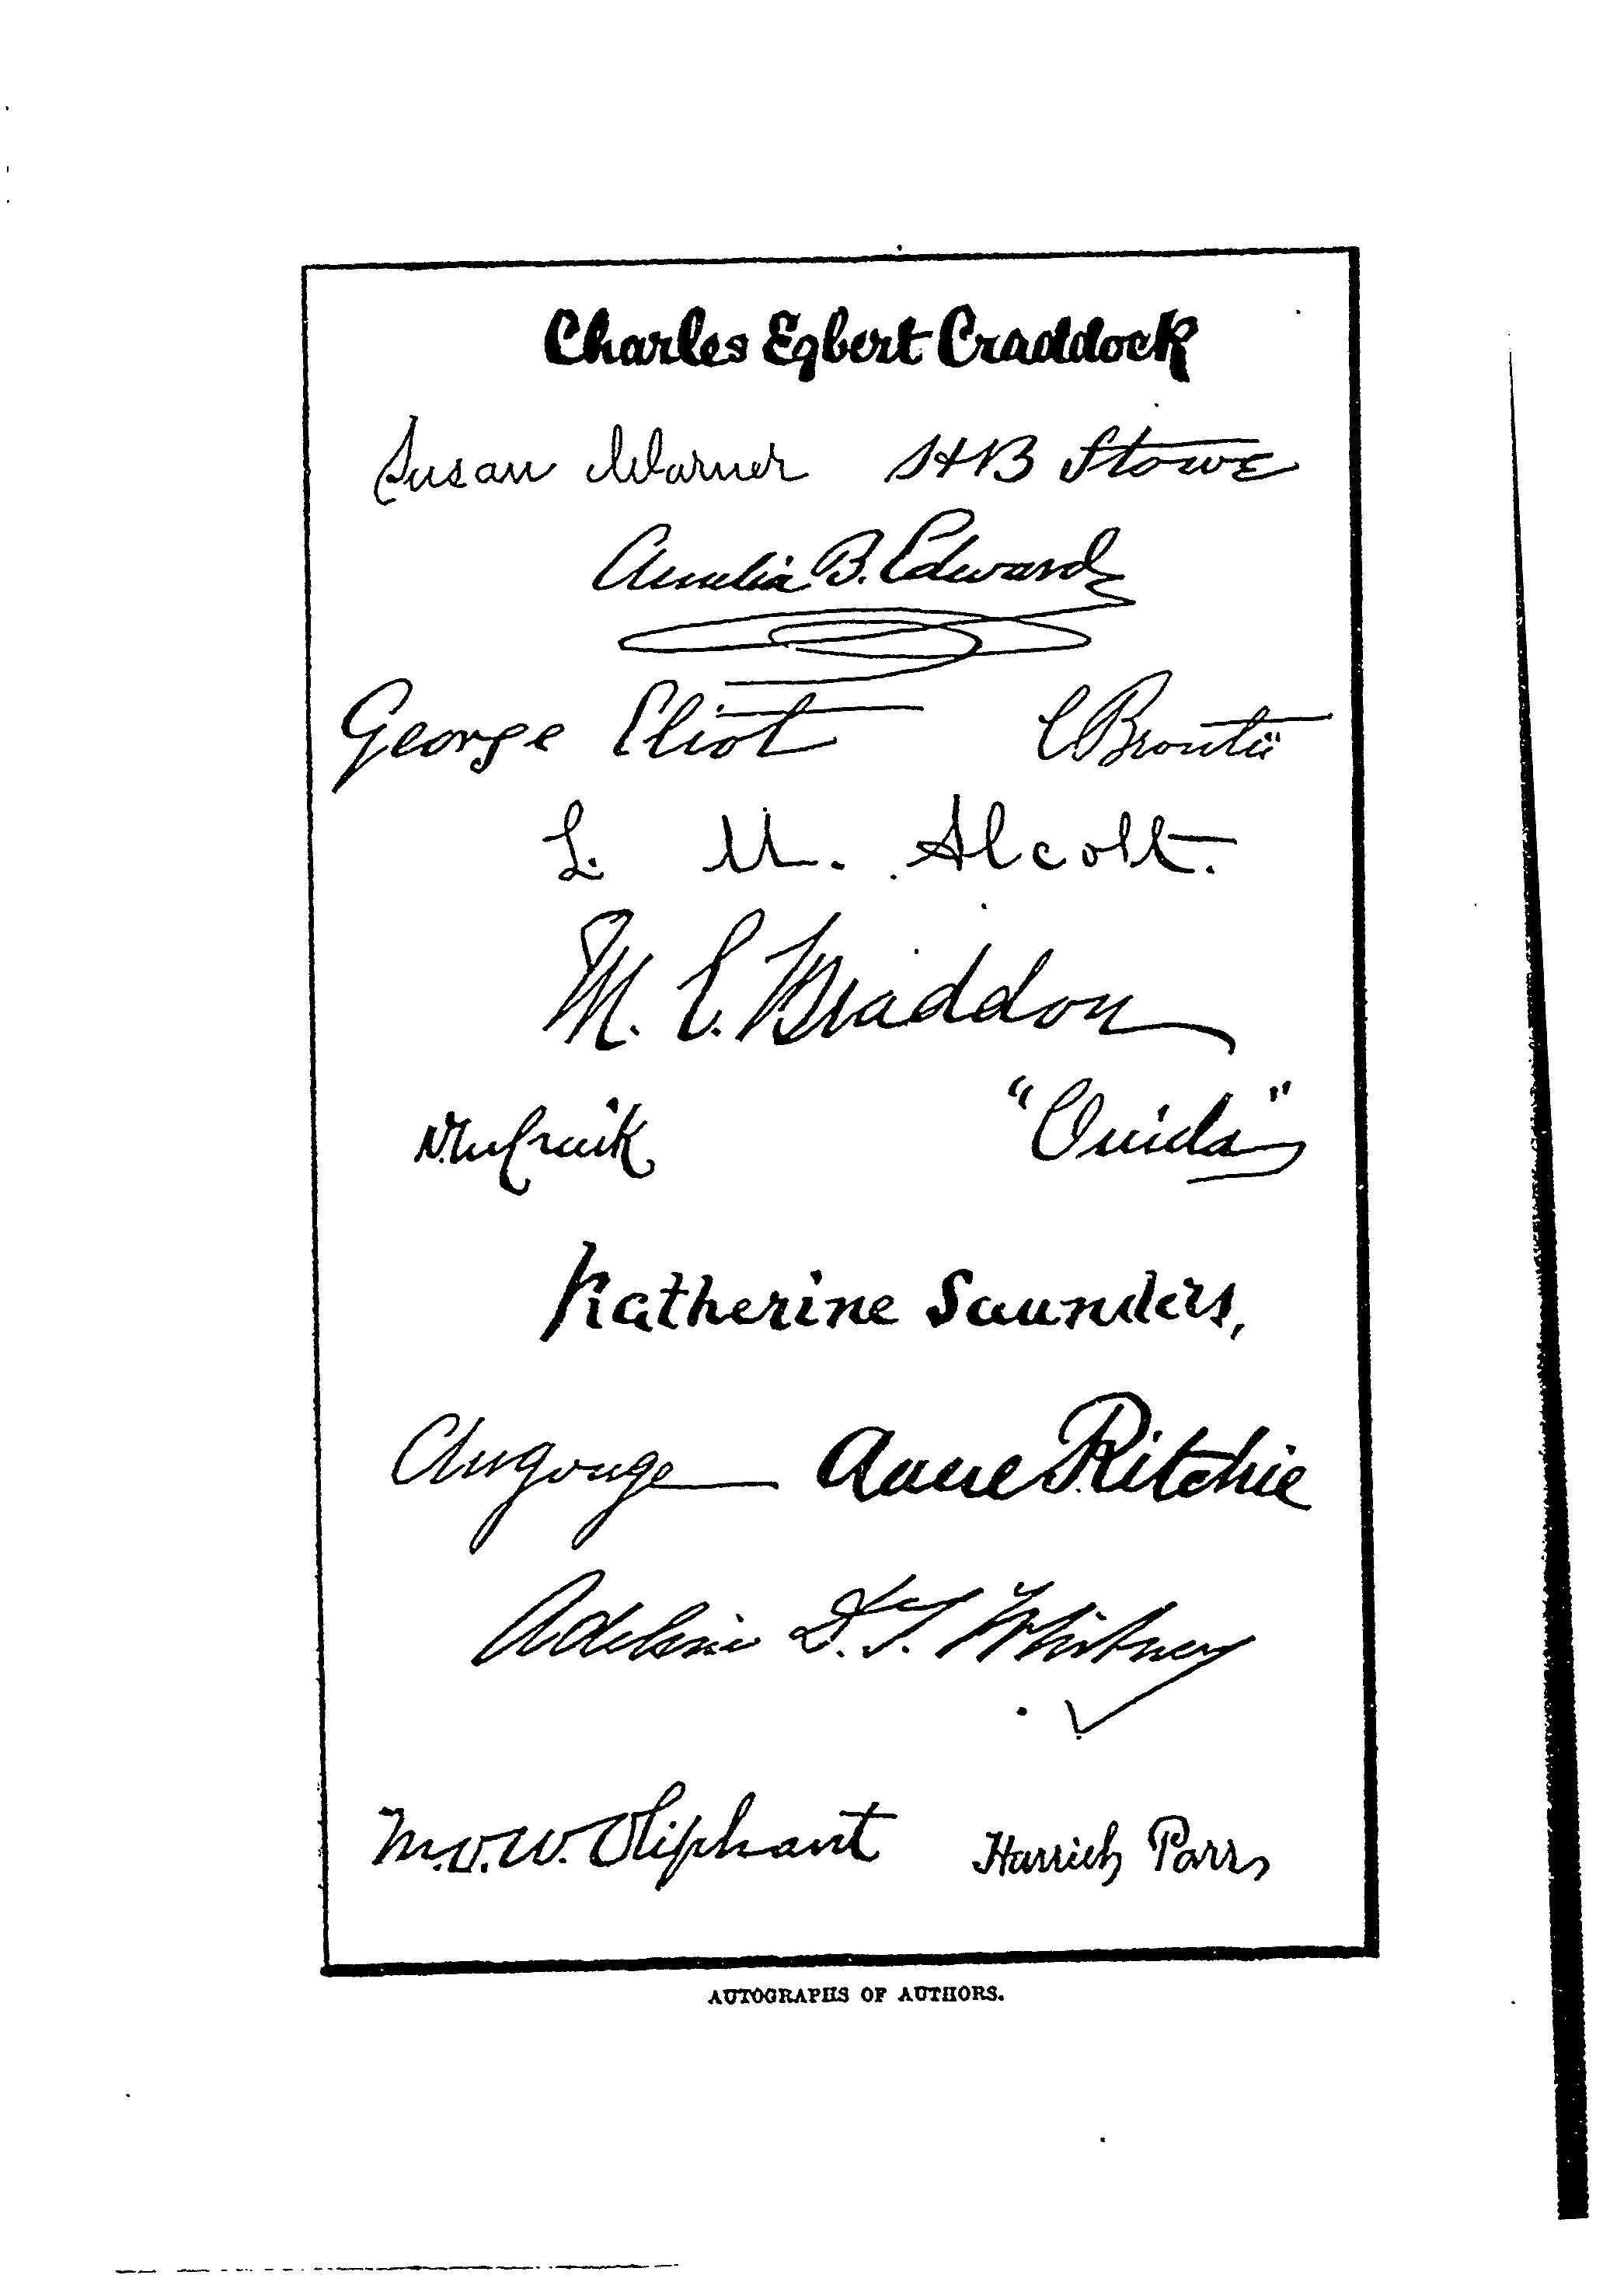 Charles Egbert Craddock
Susan Warner HB Stowe
Amelia B. Edwards
George Eliot C Brontë
L. M. Alcott.
M. E. Braddon
DMCraik "Ouida"
Katherine Saunders,
Anne Ritchie
Adeline D. T. Whitney
M.O.W. Oliphant Harriet Parr
AUTOGRAPHS OF AUTHORS.